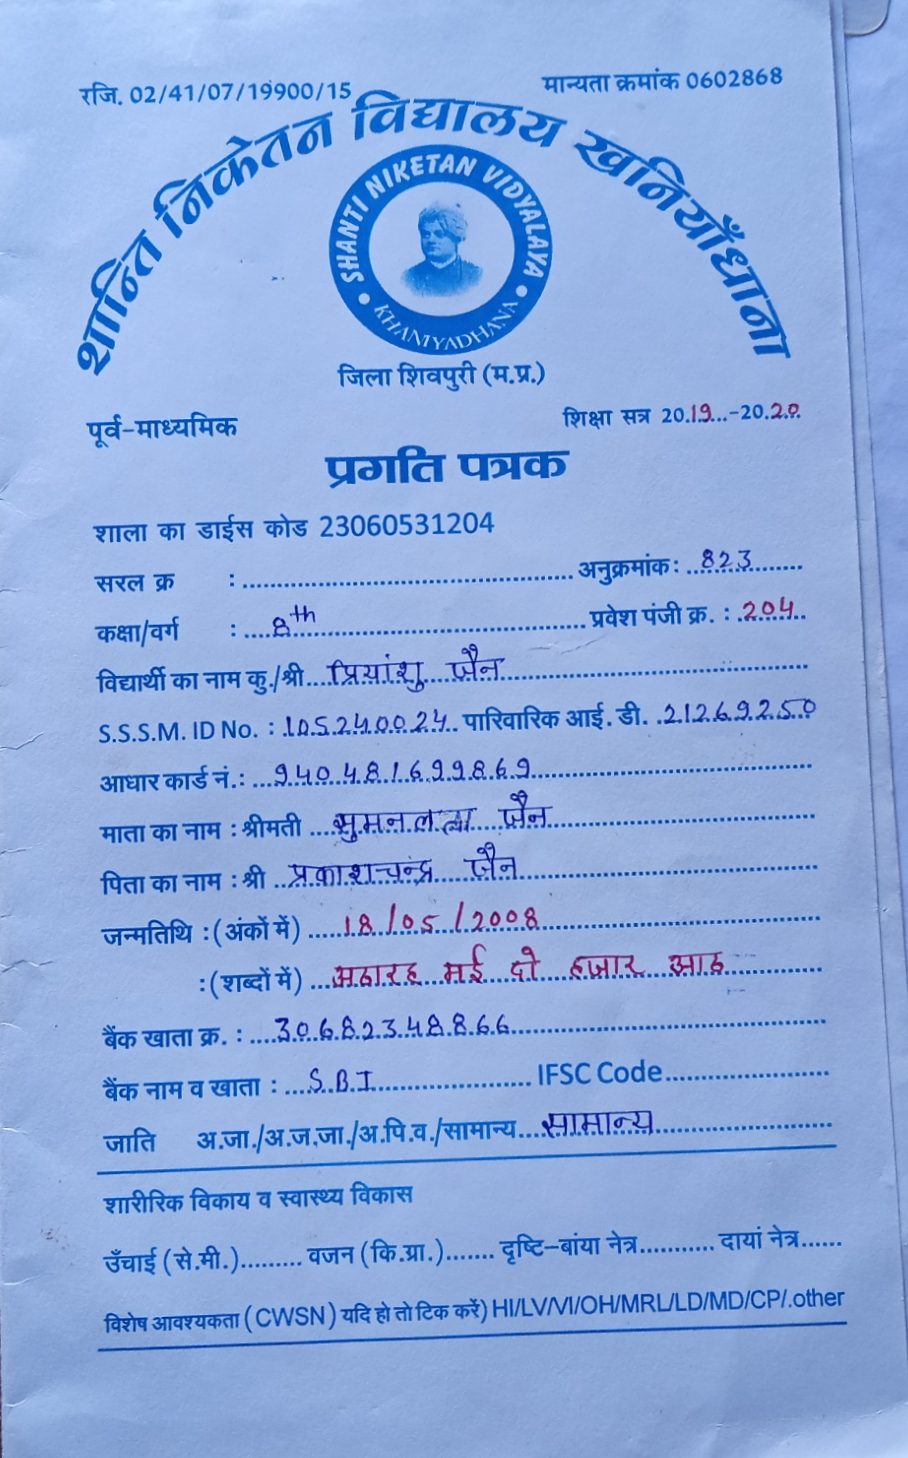 रजि. 02/41/07/19900/15 मान्यता क्रमांक 0602868
शान्ति निकेतन विद्यालय खनियाँधाना
SHANTI NIKETAN VIDYALAYA
KHANIYADHANA
जिला शिवपुरी (म.प्र.)
पूर्व-माध्यमिक शिक्षा सत्र 20.19...-20.20
प्रगति पत्रक
शाला का डाईस कोड 23060531204
सरल क्र : अनुक्रमांक: 823
कक्षा/वर्ग : 8th प्रवेश पंजी क्र. : 204
विद्यार्थी का नाम कु./श्री प्रियांशु जैन
S.S.S.M. ID No. : 105240024 पारिवारिक आई. डी. 21269250
आधार कार्ड नं.: 940481699869
माता का नाम : श्रीमती सुमनलता जैन
पिता का नाम : श्री प्रकाशचन्द्र जैन
जन्मतिथि : (अंकों में) 18/05/2008
: (शब्दों में) अठारह मई दो हजार आठ
बैंक खाता क्र. : 30682348866
बैंक नाम व खाता : S.B.I IFSC Code
जाति अ.जा./अ.ज.जा./अ.पि.व./सामान्य सामान्य
शारीरिक विकाय व स्वास्थ्य विकास
उँचाई (से.मी.)......... वजन (कि.ग्रा.)....... दृष्टि-बांया नेत्र........... दायां नेत्र......
विशेष आवश्यकता (CWSN) यदि हो तो टिक करें) HI/LV/VI/OH/MRL/LD/MD/CP/.other